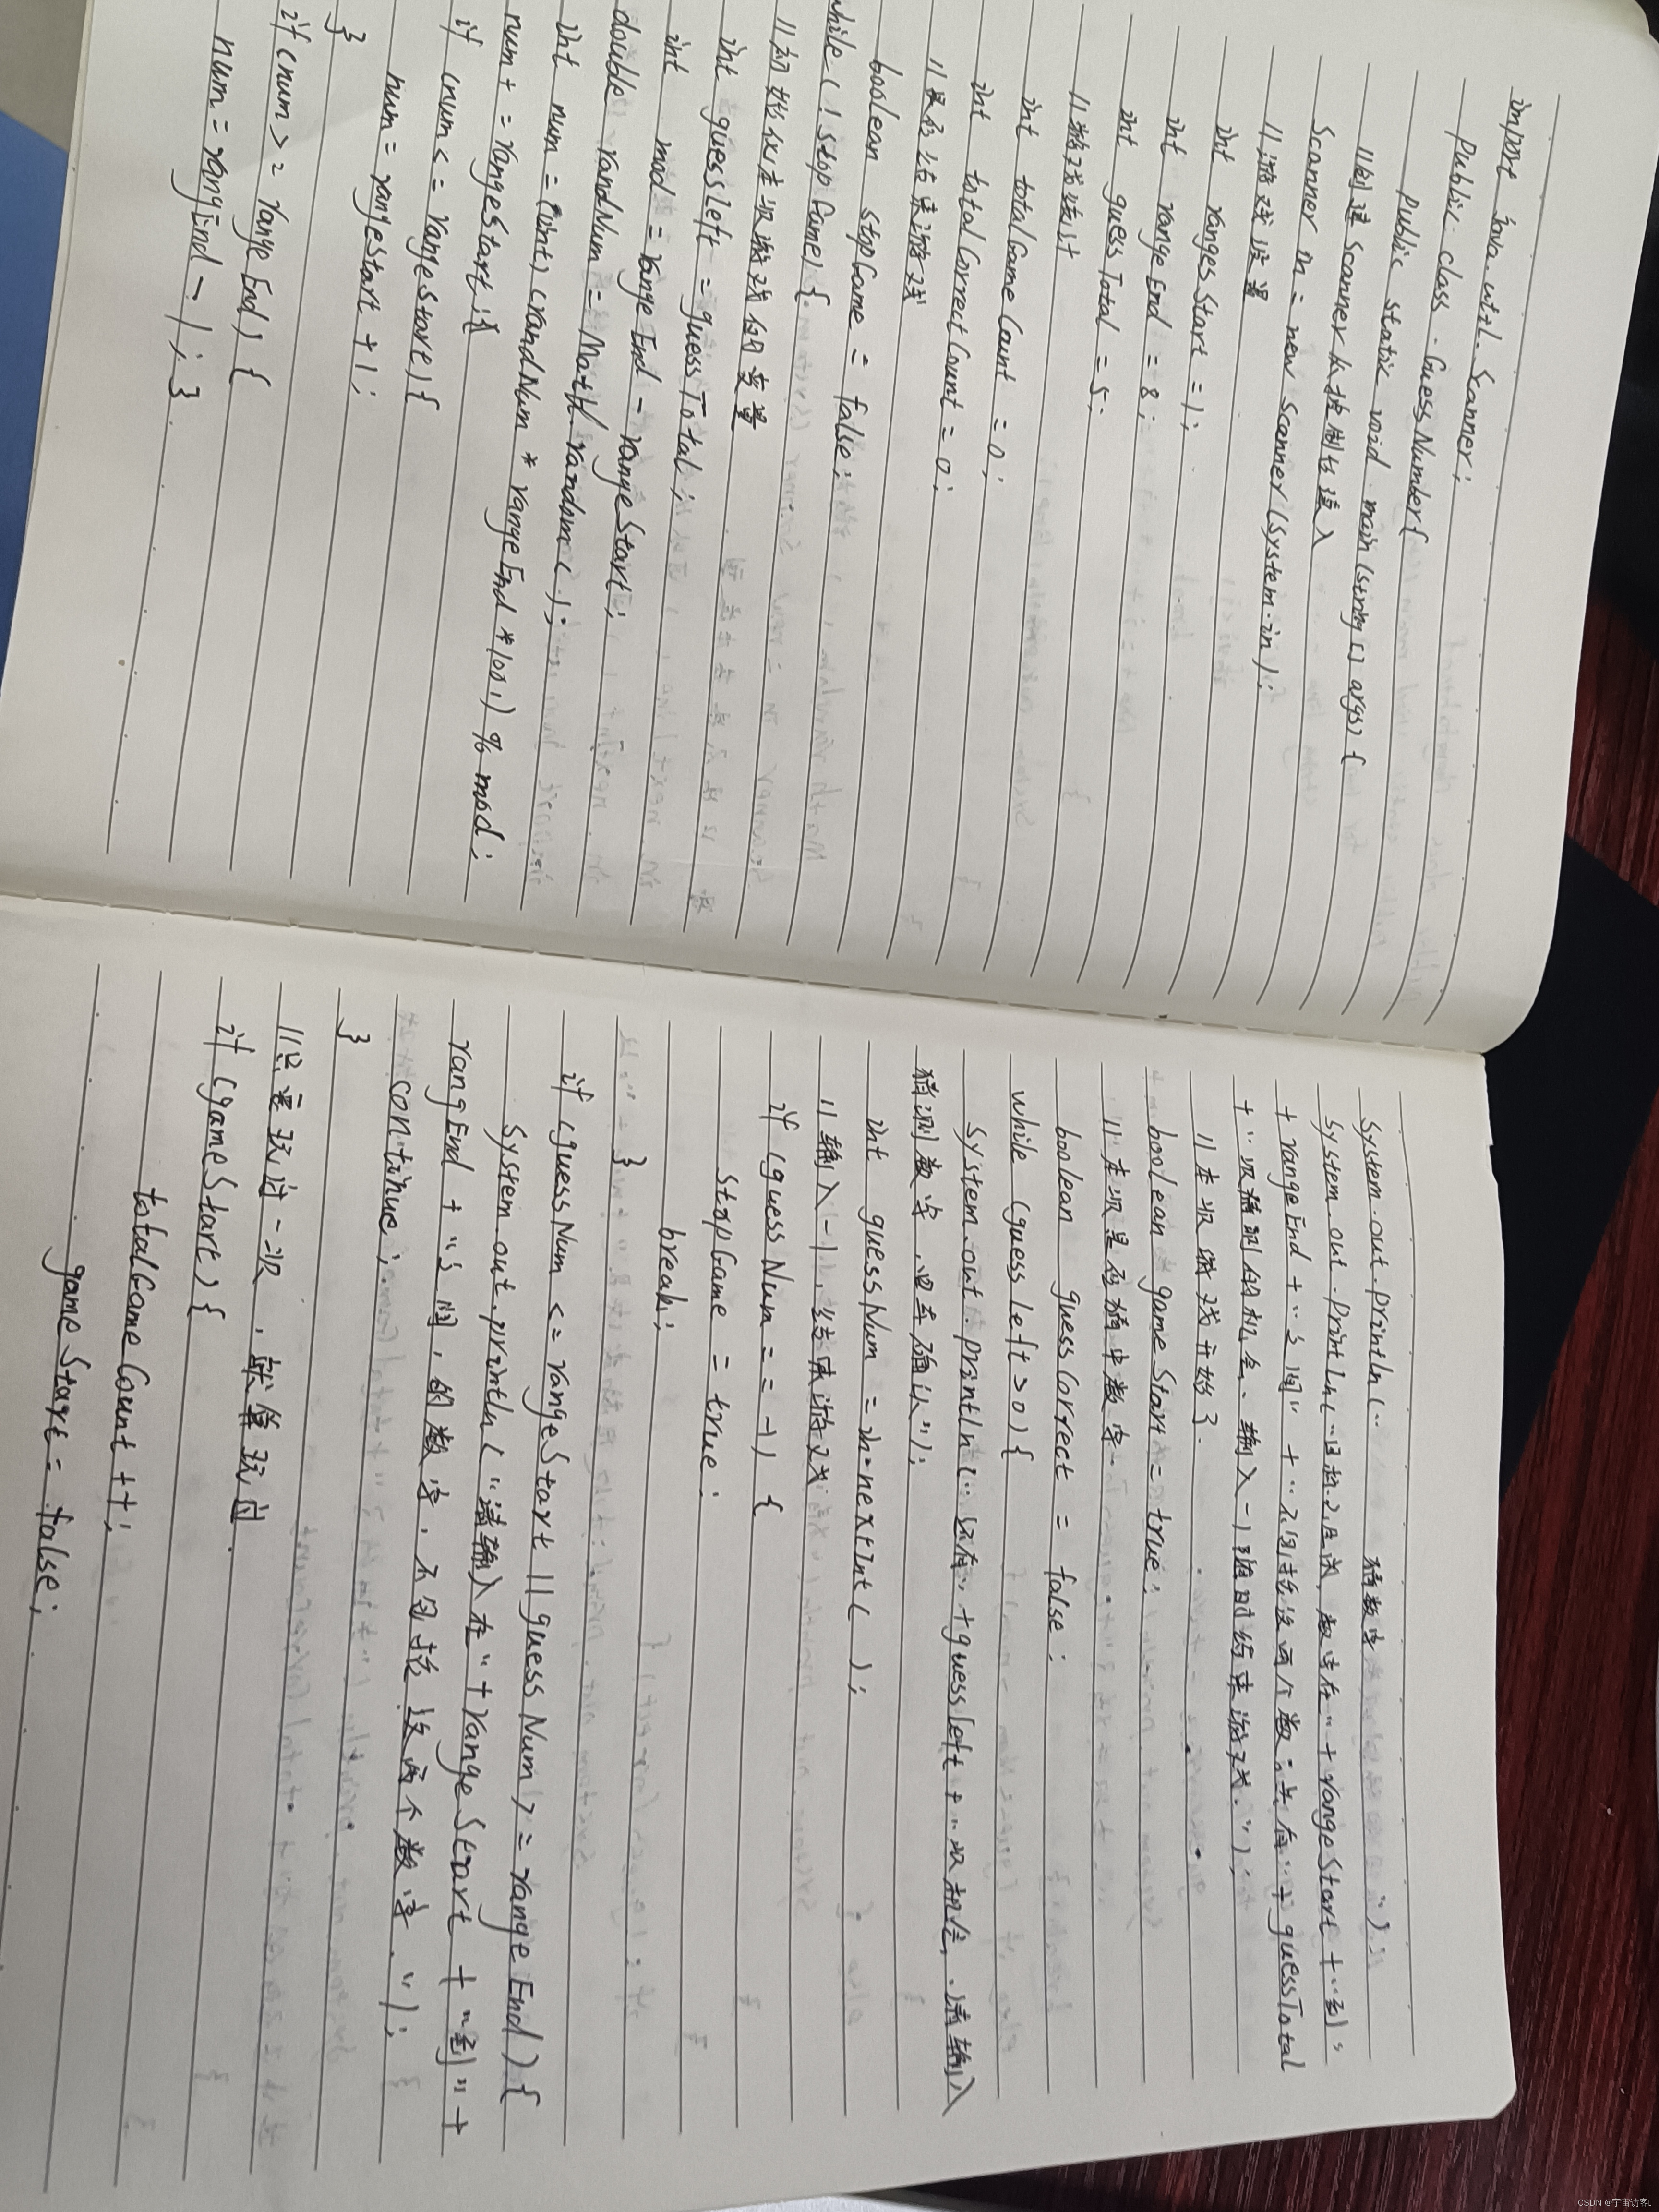 import java.util.Scanner;
public class GuessNumber{
public static void main(string[] args) {
//创建Scanner从控制台输入
Scanner in = new Scanner(System.in);
//游戏设置
int rangeStart = 1;
int rangeEnd = 8;
int guessTotal = 5;
//游戏统计
int totalGameCount = 0;
int totalCorrectCount = 0;
//是否结束游戏
boolean stopGame = false;
while (!stopGame) {
//初始化本次游戏的变量
int guessleft = guessTotal;
int mod = rangeEnd - rangeStart;
double randNum = Math.random();
int num = (int) (randNum * rangeEnd * 100) % mod;
num += rangeStart;
if (num <= rangeStart) {
num = rangeStart + 1;
}
if (num >= rangeEnd) {
num = rangEnd - 1; }
System.out.println("猜数字");
System.out.println("目标已生成,数字在" + rangeStart + "到"
+ rangeEnd + "之间" + "不包括这两个数:共有" + guessTotal
+ "次猜测的机会、输入-1随时结束游戏.");
//本次游戏开始了.
boolean gameStart = true;
//本次是否猜中数字.
boolean guessCorrect = false;
while (guessleft > 0) {
System.out.println("还有" + guessleft + "次机会,请输入
猜测数字,回车确认");
int guessNum = in.nextInt( );
//输入-1,结束游戏
if (guessNum == -1) {
stopGame = true;
break;
}
if (guessNum <= rangeStart || guessNum >= rangeEnd) {
System.out.println("请输入在" + rangeStart + "到" +
rangEnd + "之间,的数字,不包括这两个数字.");
continue;
}
//只要玩过一次,就算玩过.
if (gameStart) {
totalGameCount ++;
gameStart = false;
CSDN @宇宙访客